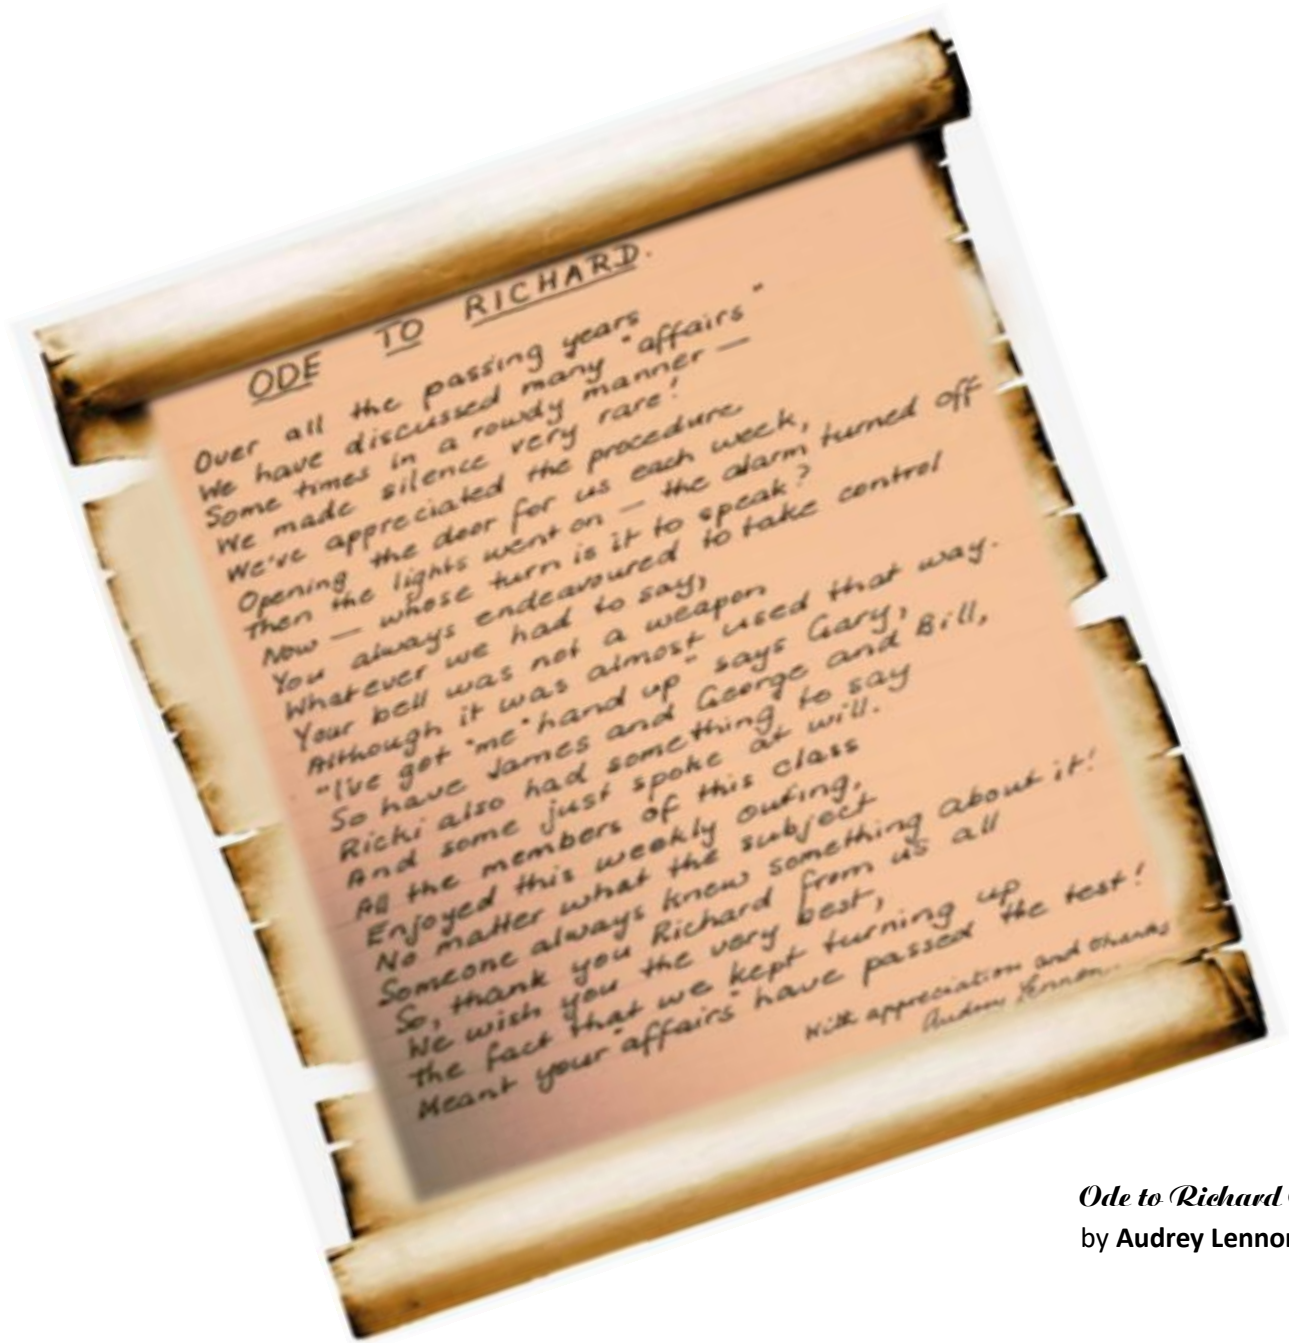 ODE TO RICHARD.
Over all the passing years
We have discussed many "affairs"
Some times in a rowdy manner —
We made silence very rare!
We've appreciated the procedure
Opening the door for us each week,
Then the lights went on — the alarm turned off
Now — whose turn is it to speak?
You always endeavoured to take control
Whatever we had to say,
Your bell was not a weapon
Although it was almost used that way.
"I've got "me" hand up" says Gary,
So have James and George and Bill,
Ricki also had something to say
And some just spoke at will.
All the members of this class
Enjoyed this weekly outing,
No matter what the subject
Someone always knew something about it!
So, thank you Richard from us all
We wish you the very best,
The fact that we kept turning up
Meant your "affairs" have passed the test!
With appreciation and thanks
Audrey Lennon.
Ode to Richard
by Audrey Lennon